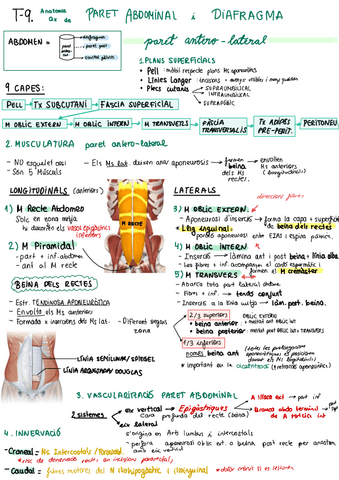 T-9. Anatomia Qx de PARET ABDOMINAL i DiAFRAGMA
ABDOMEN =
diafragma
paret post.
cavitat pèlvica
paret antero-lateral
1. PLANS SUPERFICIALS
• Pell: mòbil respecte plans Ms aponeuròtics
• Línies Langer: incisions
• Plecs cutanis
SUPRAUMBILICAL
INFRAUMBILICAL
SUPRAPÚBIC
9 CAPES:
PELL → TX SUBCUTANI → FASCIA SUPERFICIAL
M OBLIC EXTERN → M OBLIC INTERN → M TRANSVERS → FASCIA TRANSVERSALIS → TX ADIPÓS PRE-PERIT. → PERITONEU
2. MUSCULATURA paret antero-lateral
- NO esquelet ossi
- Són 5 Músculs
- Els Ms lat deixen anar aponeurosis → formen beina dels Ms rectes. → envolten Ms anteriors (longitudinals)
LONGITUDINALS (anteriors)
1) M Recte Abdomen
Sols en zona mitja
hi discorre els vasos epigàstrics inferiors
2) M Piramidal
- part + inf abdomen
- ant al M recte
M RECTE
BEINA DELS RECTES
- Estr. TENDINOSA APONEURÒTICA
- Envolta els Ms anteriors
- Formada x insercions dels Ms lat.
- Diferent segons zona
LÍNIA SEMILUNAR/SPIEGEL
LÍNIA ARQUADA/DOUGLAS
LATERALS
3) M OBLIC EXTERN
- Aponeurosi d'inserció → forma la capa + superficial de beina dels rectes
- Llig inguinal: porció aponeurosi entre EIAS i espina púbica.
4) M OBLIC INTERN
- Inserció → làmina ant i post beina + línia alba
- Les fibres + inf acompanyen el cordó espermàtic i formen el M cremàster
5) M TRANSVERS
- Abarca tota part lateral abdome
- Fibres + inf. → tendó conjunt
- Inserció a la línia mitja → làm. post. beina.
2/3 superiors
beina anterior: OBLIC EXTERN + meitat ant OBLIC INT
beina posterior: meitat post OBLIC INT + TRANSVERS
1/3 inferiors
només beina ant
* important en la cicatrització (retracció aponeuròtica)
3. VASCULARITZACIÓ PARET ABDOMINAL
2 sistemes
eix vertical → Epigàstriques
Cara profunda del recte (beina)
A ilíaca ext → part inf
Branca endo terminal → part sup
de A torácica int
eix lateral
- s'origina en Arts lumbars i intercostals
- perfora aponeurosi oblic ext. o beina post recte per anastom. amb eix vertical
4. INNERVACIÓ
- Cranial = Ns Intercostals/Toracoabd.
* risc de denervació rectes en incisions pararectals,
- Caudal = fibres motores del N iliohipogàstric i ilioinguinal
* dolor crònic si es lesionen